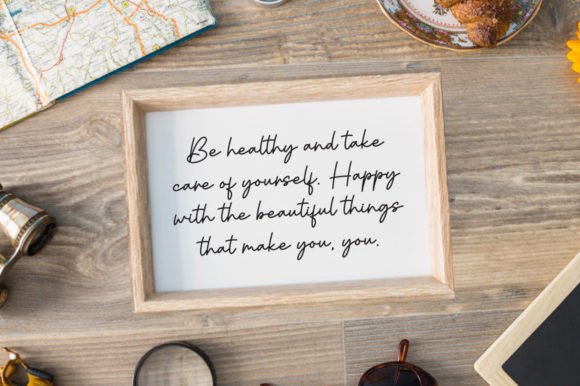 Be healthy and take
care of yourself. Happy
with the beautiful things
that make you, you.